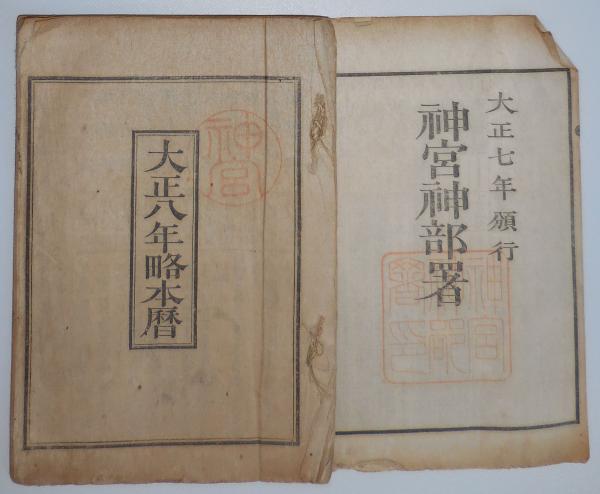 大正七年頒行
神宮神部署
神宮神部署印
神宮
大正八年略本暦